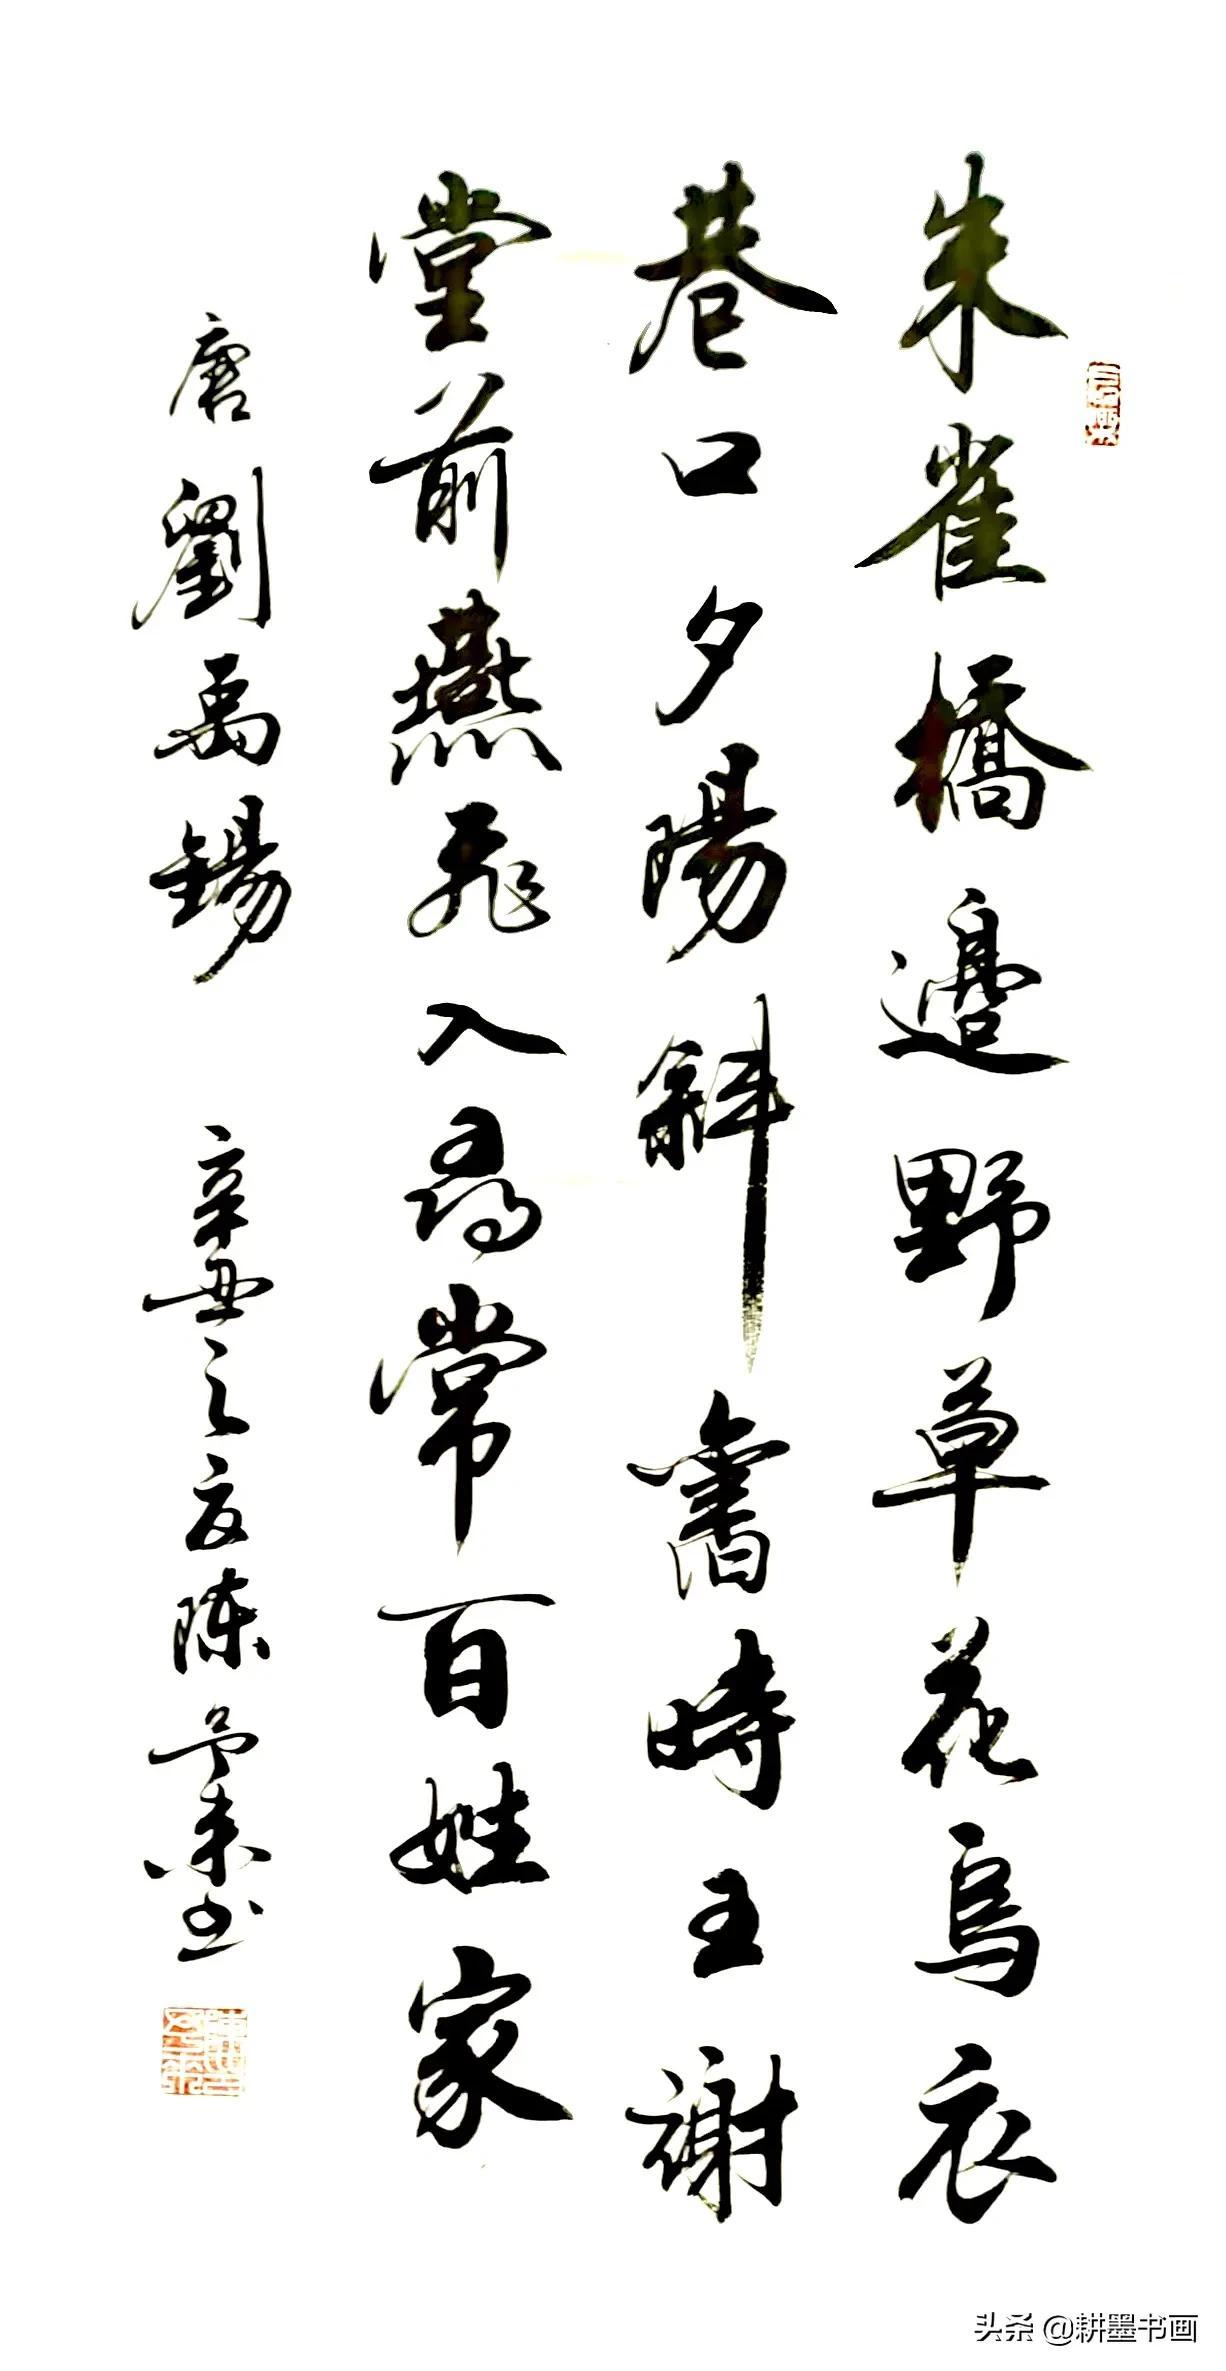 朱雀橋邊野草花烏衣
巷口夕陽斜舊時王謝
堂前燕飛入尋常百姓家
唐劉禹錫 辛丑之夏陳予來书
头条 @耕墨书画